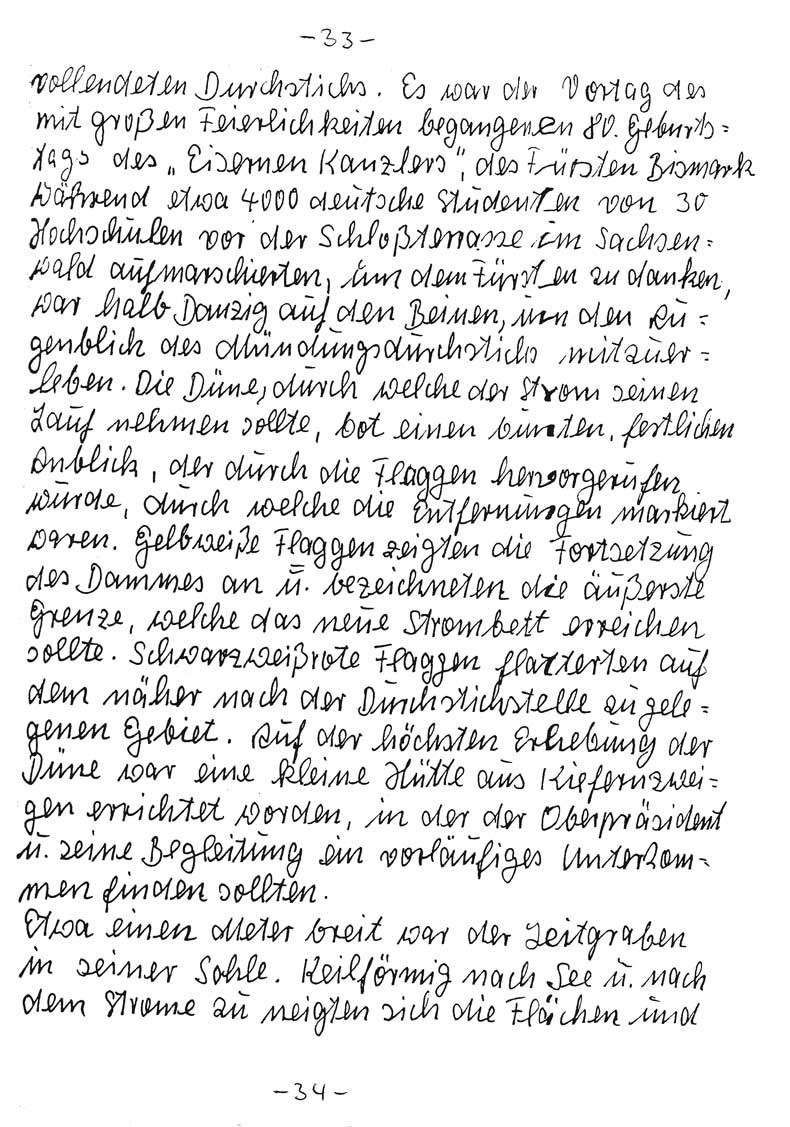 -33-
vollendeten Durchstichs. Es war der Vortag des
mit großen Feierlichkeiten begangenen 80. Geburts=
tags des „Eisernen Kanzlers", des Fürsten Bismark
Während etwa 4000 deutsche Studenten von 30
Hochschulen vor der Schloßterrasse im Sachsen=
wald aufmarschierten, um dem Fürsten zu danken,
war halb Danzig auf den Beinen, um den Au=
genblick des Mündungsdurchstichs mitzuer=
leben. Die Düne, durch welche der Strom seinen
Lauf nehmen sollte, bot einen bunten, festlichen
Anblick, der durch die Flaggen hervorgerufen
wurde, durch welche die Entfernungen markiert
waren. Gelbweiße Flaggen zeigten die Fortsetzung
des Dammes an u. bezeichneten die äußerste
Grenze, welche das neue Strombett erreichen
sollte. Schwarzweißrote Flaggen flatterten auf
dem näher nach der Durchstichstelle zu gele=
genen Gebiet. Auf der höchsten Erhebung der
Düne war eine kleine Hütte aus Kiefernzwei=
gen errichtet worden, in der der Oberpräsident
u. seine Begleitung ein vorläufiges Unterkom=
men finden sollten.
Etwa einen Meter breit war der Leitgraben
in seiner Sohle. Keilförmig nach See u. nach
dem Strome zu neigten sich die Flächen und
-34-